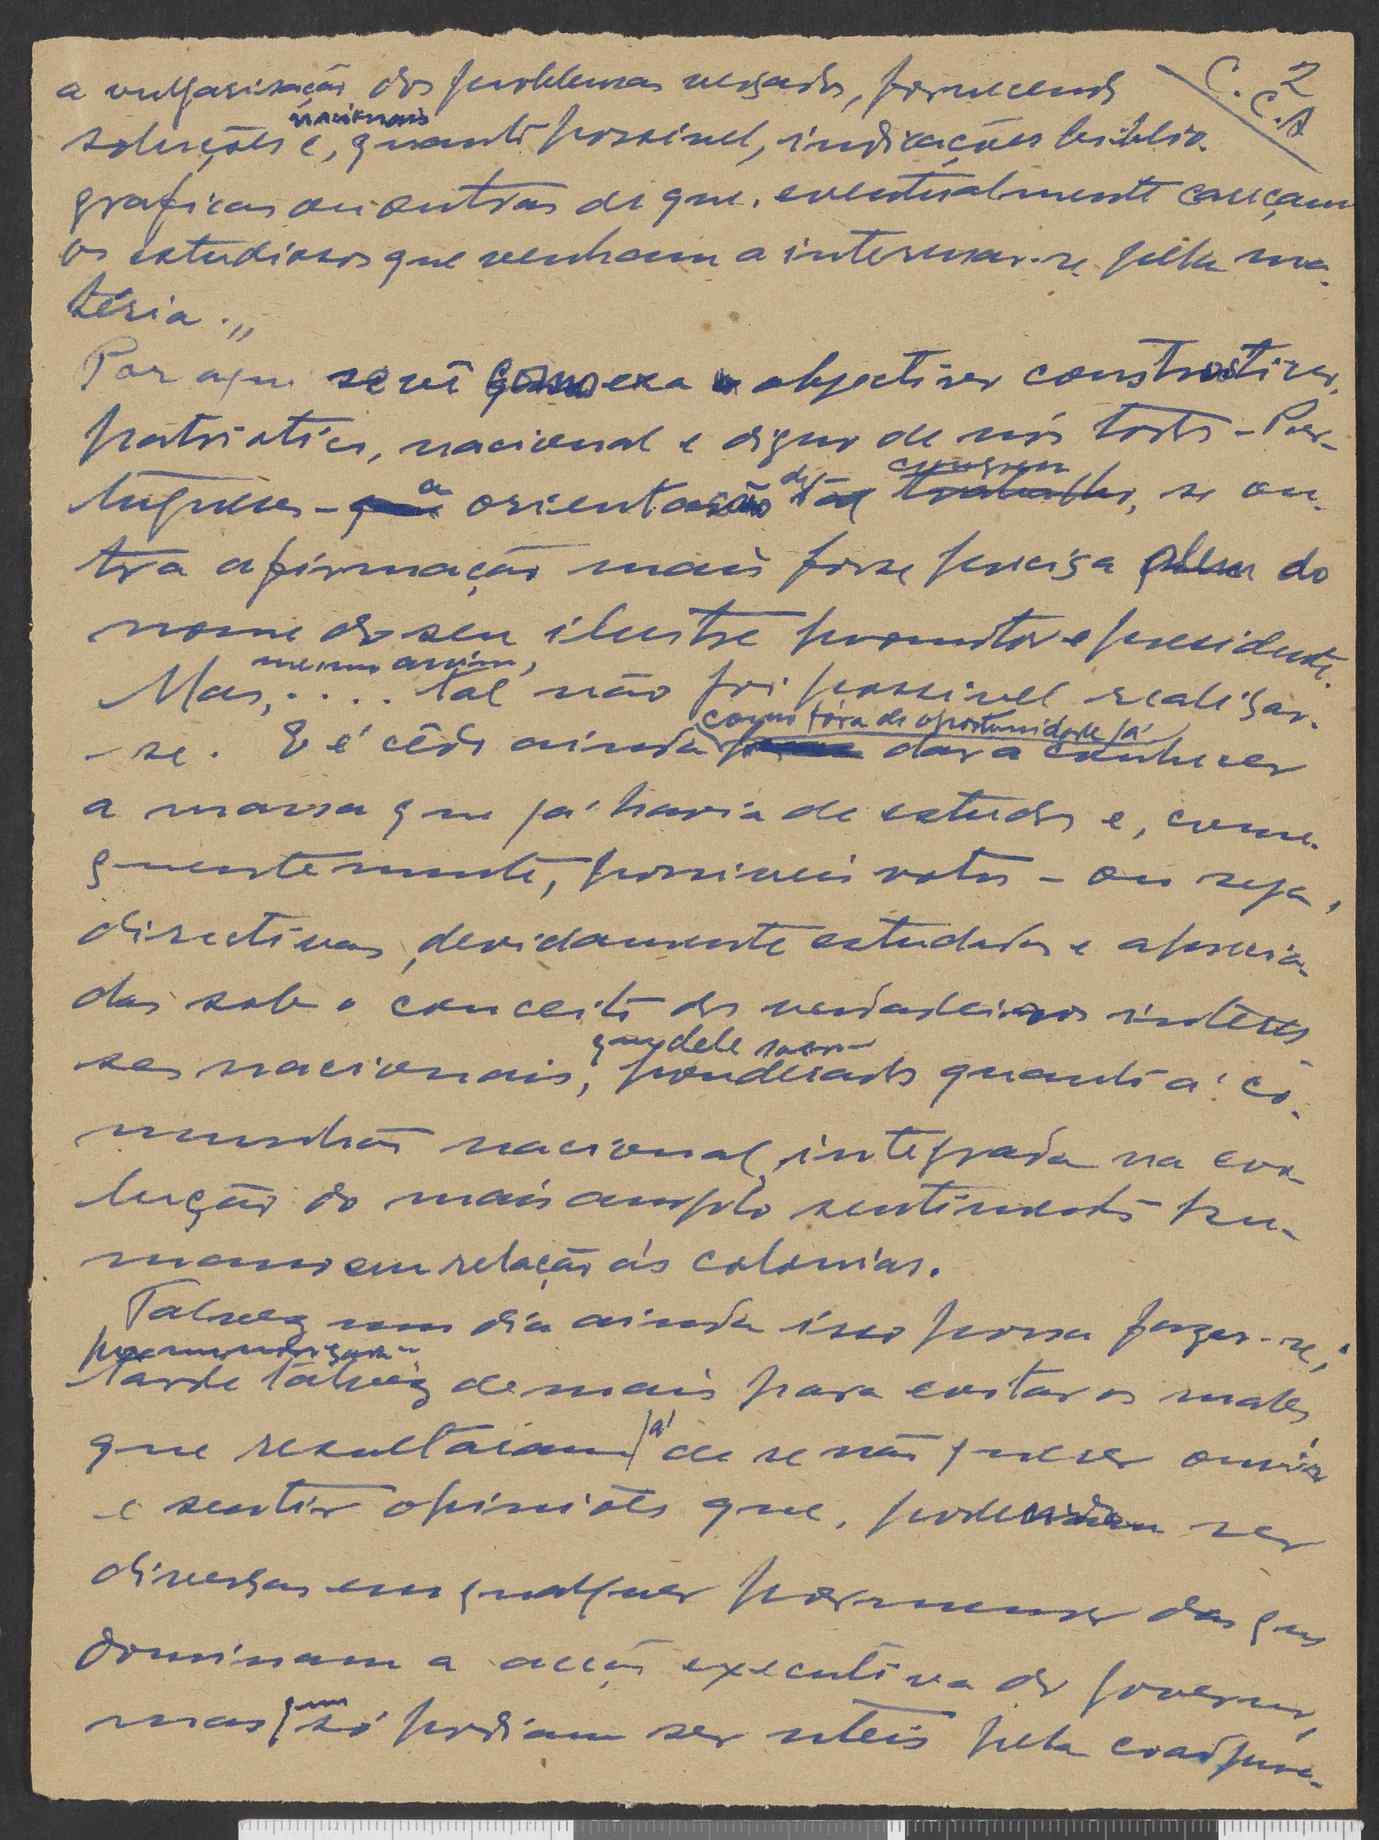 C. 2
C. A
a vulgarisação dos problemas versados, fornecendo
nacionais
soluções e, quanto possivel, indicações biblio-
graficas ou outras de que, eventualmente careçam
os estudiosos que venham a interessar-se pela ma-
téria."
Por aqui se vê era objectivo constructivo,
patriotico, nacional e digno de nós todos - Por-
a des- congresso
tugueses - orientação tal trabalho, se ou-
tra afirmação mais fosse precisa alem do
nome do seu ilustre promotor e presidente.
mesmo assim,
Mas, .... tal não foi possivel realizar-
como fóra de oportunidade já
-se. E é cêdo ainda para dar a conhecer
a massa que já havia de estudos e, conse-
quentemente, possiveis votos - ou seja,
directivas, devidamente estudadas e aprecia-
das sob o conceito dos verdadeiros interes-
ses nacionais, ponderados quanto á co-
munhão nacional, integrada na evo-
lução do mais amplo sentimento hu-
mano em relação ás colonias.
Talvez um dia ainda isso possa fazer-se;
tarde talvez de mais para evitar os males
já
que resultaram de se não querer ouvir
e sentir opiniões que, poderiam ser
diversas em qualquer pormenor das que
dominam a acção executiva do governo,
que
mas só podiam ser uteis pela coadjuva-